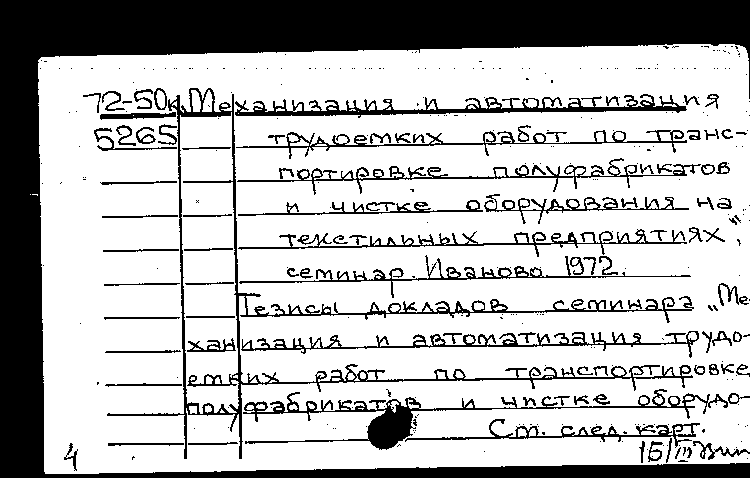 72-50к Механизация и автоматизация
5265 трудоемких работ по транс-
портировке полуфабрикатов
и чистке оборудования на
текстильных предприятиях",
семинар. Иваново. 1972.
Тезисы докладов семинара „Ме-
ханизация и автоматизация трудо-
емких работ по транспортировке
полуфабрикатов и чистке оборудо-
См. след. карт.
4 15/III